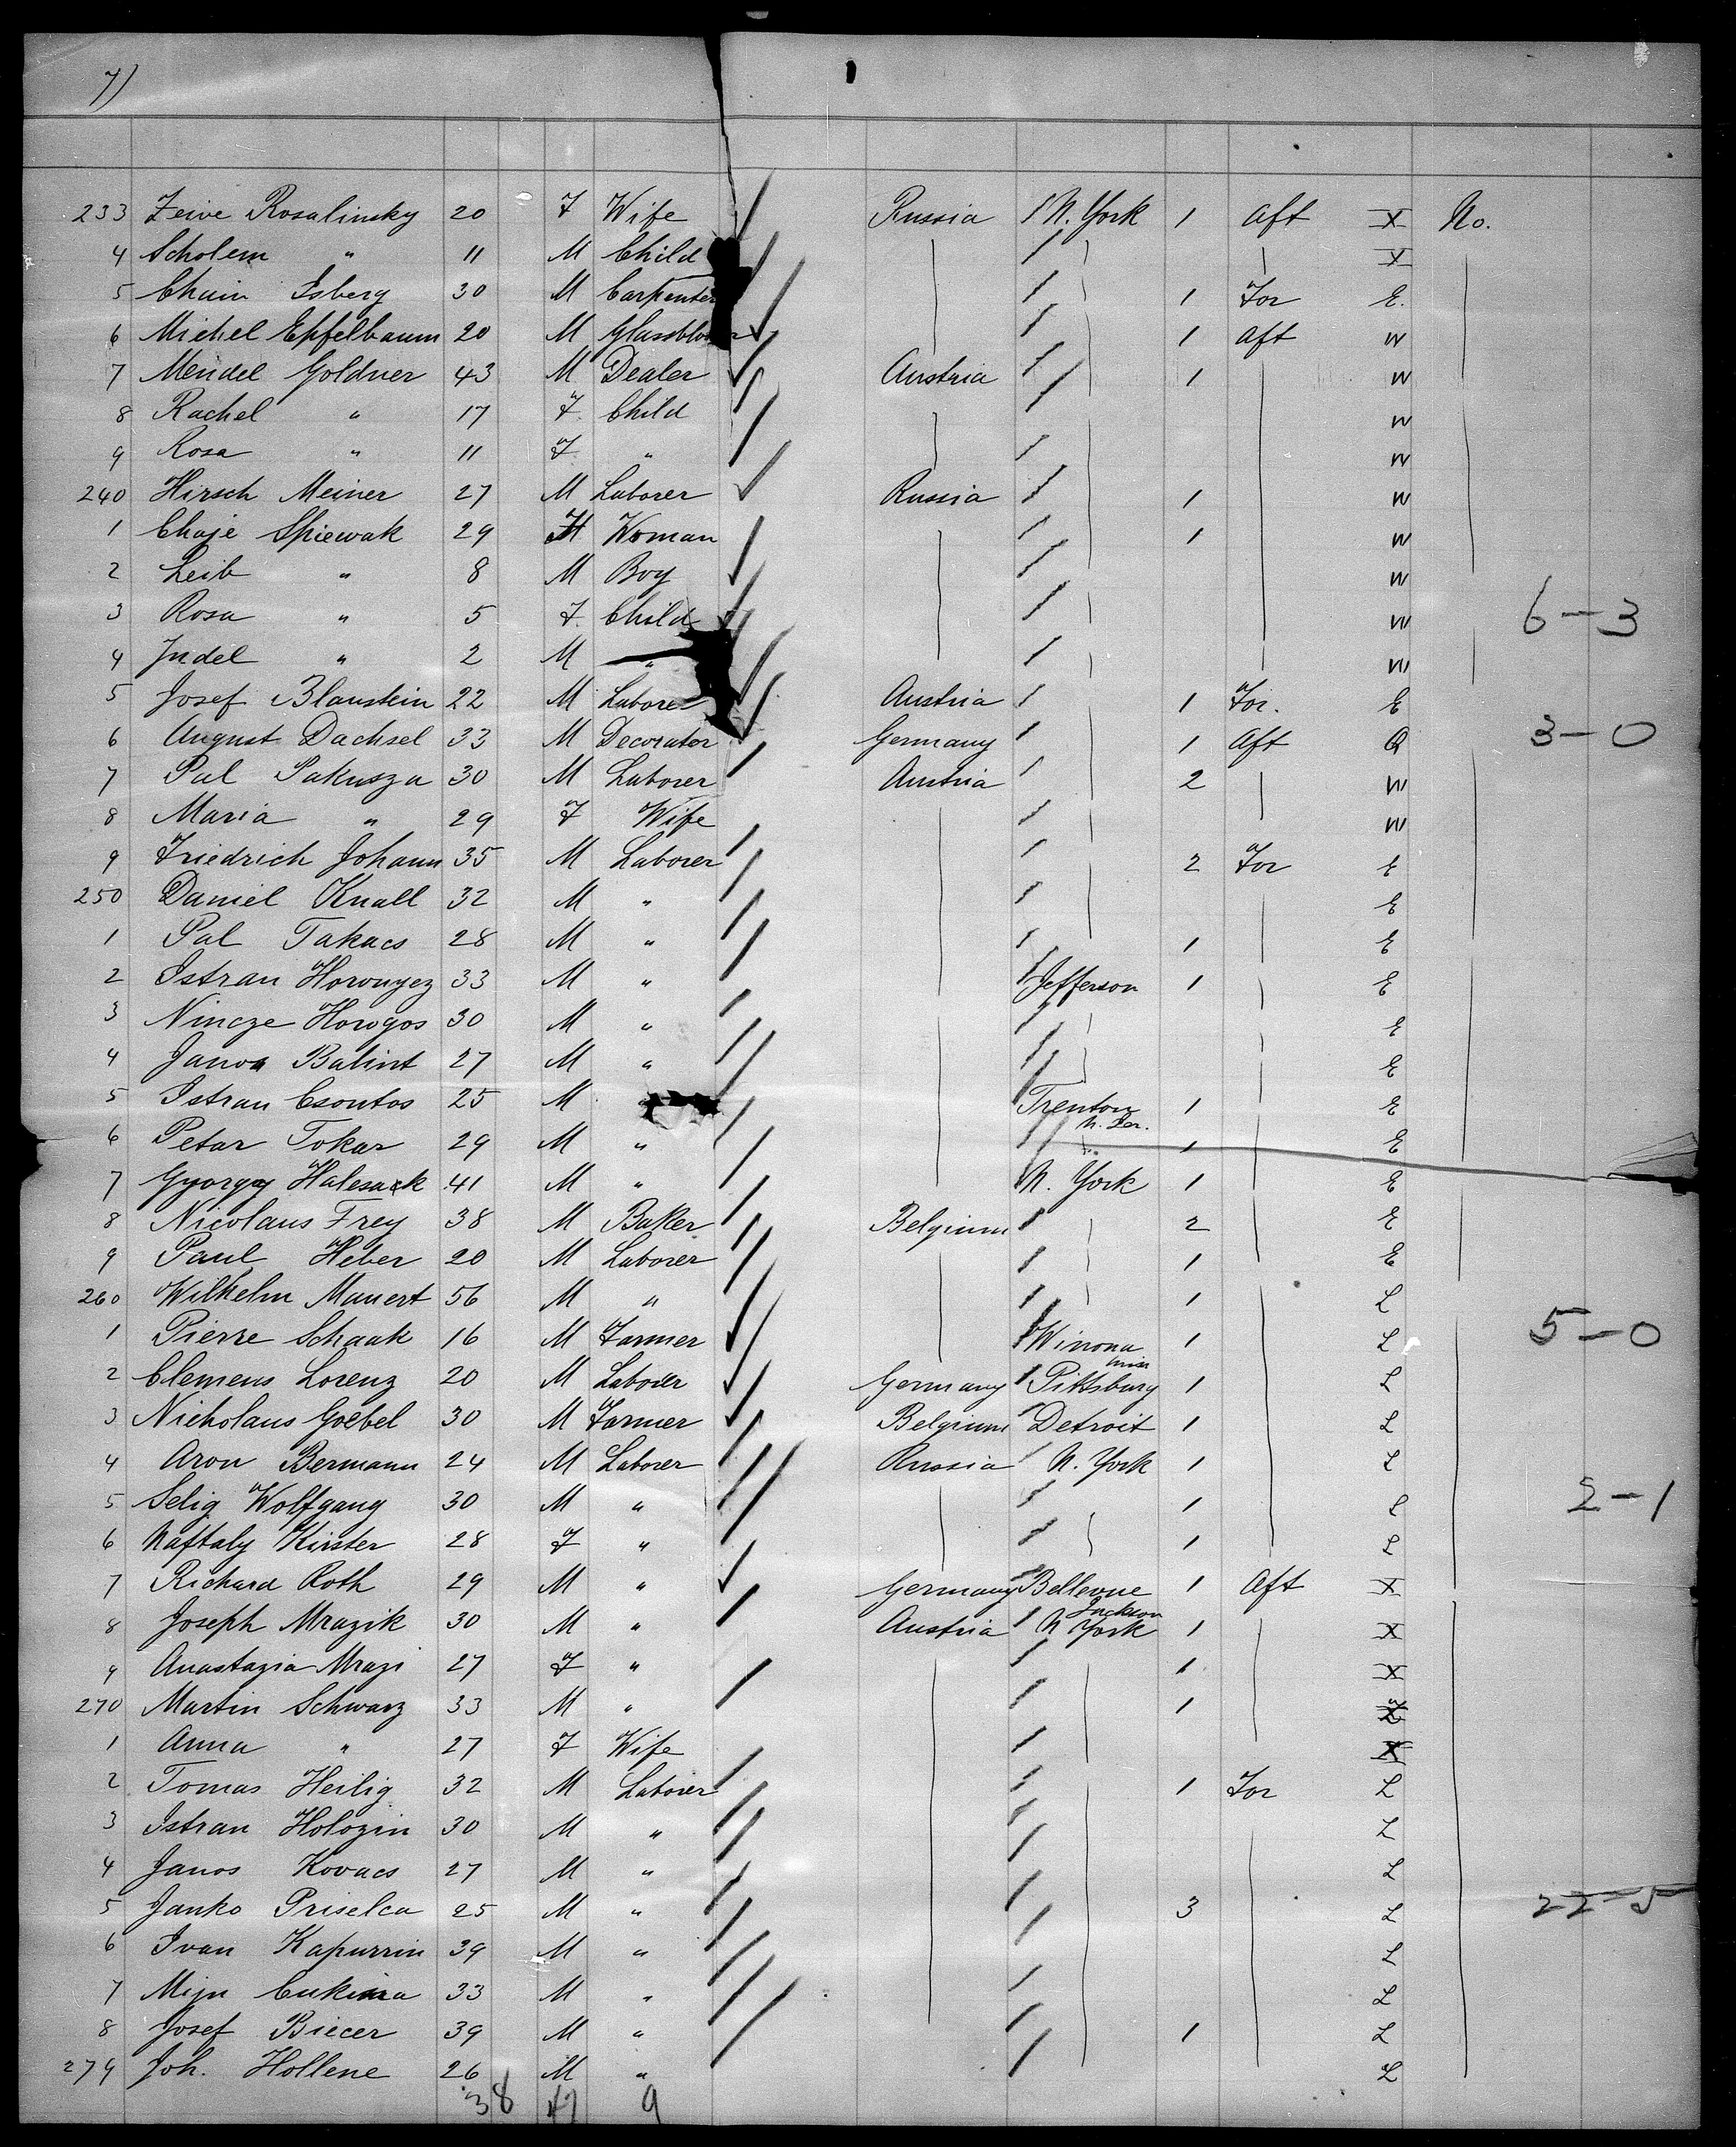 7)
233 Zeive Rosalinsky 20 F Wife Russia N. York 1 Aft X No.
4 Scholem " 11 M Child X
5 Chaim Isberg 30 M Carpenter 1 For E.
6 Michel Epfelbaum 20 M Glassblo 1 Aft W
7 Mendel Goldner 43 M Dealer Austria 1 W
8 Rachel " 17 F. Child W
9 Rosa " 11 F " W
240 Hirsch Meiner 27 M Laborer Russia 1 W
1 Chaje Spiewak 29 Woman 1 W
2 Leib " 8 M Boy W
3 Rosa " 5 F. Child W 6-3
4 Judel " 2 M " W
5 Josef Blaustein 22 M Labore Austria 1 For. E
6 August Dachsel 33 M Decorator Germany 1 Aft Q 3-0
7 Pal Pakusza 30 M Laborer Austria 2 W
8 Maria " 29 F Wife W
9 Friedrich Johann 35 M Laborer 2 For E
250 Daniel Knall 32 M " E
1 Pal Takacs 28 M " 1 E
2 Istran Horonyez 33 M " Jefferson 1 E
3 Nincze Horogos 30 M " E
4 Janos Balint 27 M " E
5 Istran Csontos 25 M Trenton 1 E
N. Jer.
6 Petar Tokar 29 M " 1 E
7 Gyorgy Halesack 41 M " N. York 1 E
8 Nicolaus Frey 38 M Baker Belgium 2 E
9 Paul Heber 20 M Laborer 1 E
260 Wilhelm Mauert 56 M " 1 L
1 Pierre Schaak 16 M Farmer Winona 1 L 5-0
2 Clemens Lorenz 20 M Laborer Germany Pittsburg 1 L
3 Nicholaus Goebel 30 M Farmer Belgium Detroit 1 L
4 Aron Bermann 24 M Laborer Russia N. York 1 L
5 Selig Wolfgang 30 M " 1 L 2-1
6 Naftaly Kirster 28 F " 1 L
7 Richard Roth 29 M " Germany Bellevue 1 Aft X
Jackson
8 Joseph Mrazik 30 M " Austria N York 1 X
9 Anastazia Mrazi 27 F " 1 X
270 Martin Schwarz 33 M " 1
1 Anna " 27 F Wife X
2 Tomas Heilig 32 M Laborer 1 For L
3 Istran Holozin 30 M " L
4 Janos Kovacs 27 M " L
5 Janko Priselca 25 M " 3 L 22-5
6 Ivan Kapurrin 39 M " L
7 Mijn 33 M " L
8 Josef Biecer 39 M " 1 L
279 Joh. Hollene 26 M " L
38 47 9